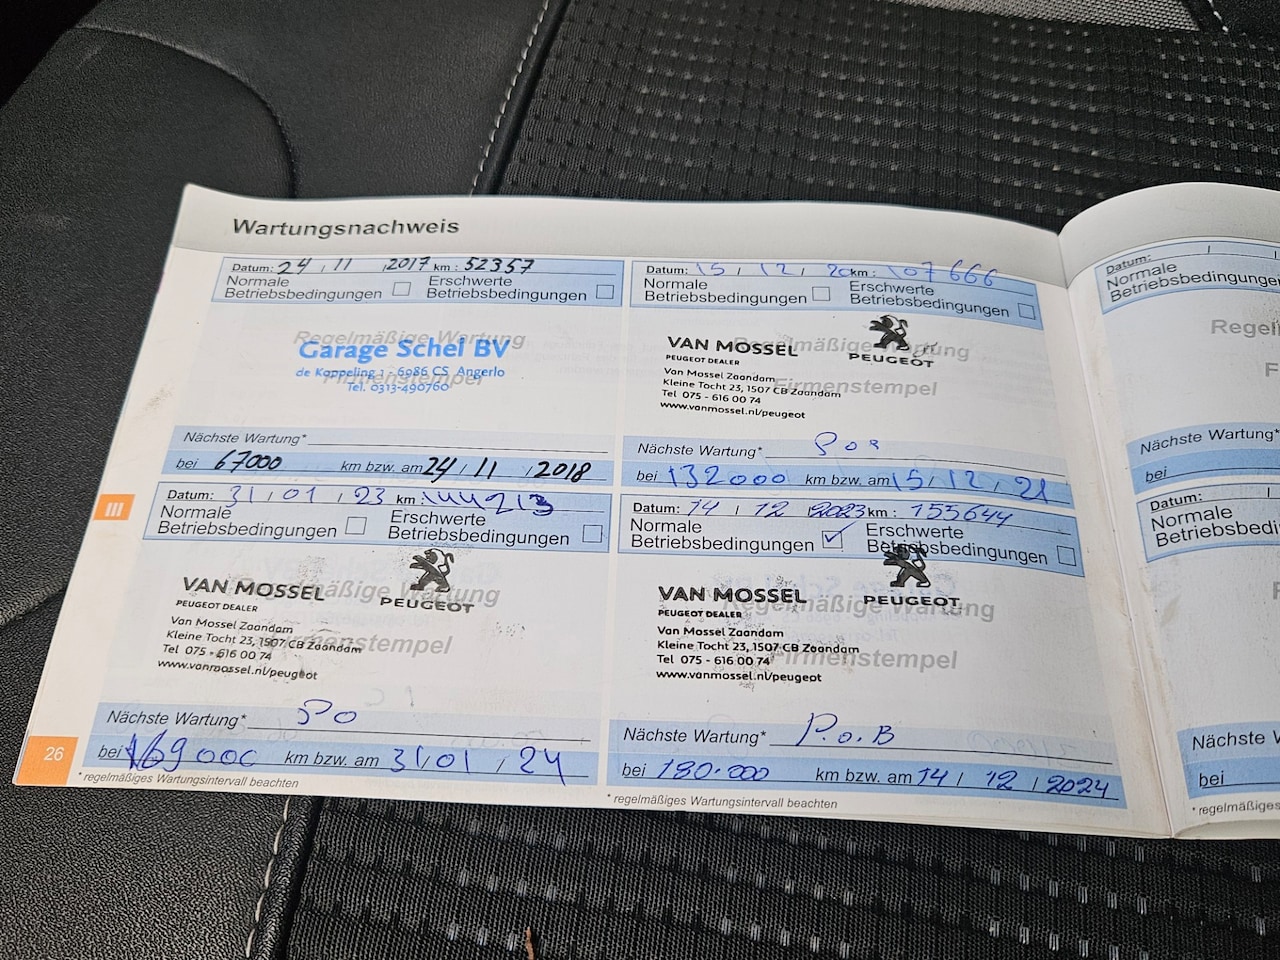 Wartungsnachweis
Datum: 24 / 11 / 2017 km: 52357
Normale
Betriebsbedingungen
Erschwerte
Betriebsbedingungen
Regelmäßige Wartung
Firmenstempel
Garage Schel BV
de Koppeling 1 - 6986 CS Angerlo
Tel. 0313-490760
Nächste Wartung*
bei 67000 km bzw. am 24 / 11 / 2018
Datum: 15 / 12 / 20 km: 107666
Normale
Betriebsbedingungen
Erschwerte
Betriebsbedingungen
Regelmäßige Wartung
Firmenstempel
VAN MOSSEL
PEUGEOT DEALER
PEUGEOT
Van Mossel Zaandam
Kleine Tocht 23, 1507 CB Zaandam
Tel 075 - 616 00 74
www.vanmossel.nl/peugeot
Nächste Wartung*
bei 132000 km bzw. am 15 / 12 / 21
III
Datum: 31 / 01 / 23 km: 144213
Normale
Betriebsbedingungen
Erschwerte
Betriebsbedingungen
Regelmäßige Wartung
Firmenstempel
VAN MOSSEL
PEUGEOT DEALER
PEUGEOT
Van Mossel Zaandam
Kleine Tocht 23, 1507 CB Zaandam
Tel 075 - 616 00 74
www.vanmossel.nl/peugeot
Nächste Wartung* Po
bei 169000 km bzw. am 31 / 01 / 24
* regelmäßiges Wartungsintervall beachten
26
Datum: 14 / 12 / 2023 km: 155644
Normale
Betriebsbedingungen ✓
Erschwerte
Betriebsbedingungen
Regelmäßige Wartung
Firmenstempel
VAN MOSSEL
PEUGEOT DEALER
PEUGEOT
Van Mossel Zaandam
Kleine Tocht 23, 1507 CB Zaandam
Tel 075 - 616 00 74
www.vanmossel.nl/peugeot
Nächste Wartung* P.o.B
bei 180.000 km bzw. am 14 / 12 / 2024
* regelmäßiges Wartungsintervall beachten
Datum: / /
Normale
Betriebsbedingungen
Nächste Wartung*
bei
Datum: /
Normale
Nächste
bei
* regelmäßiges